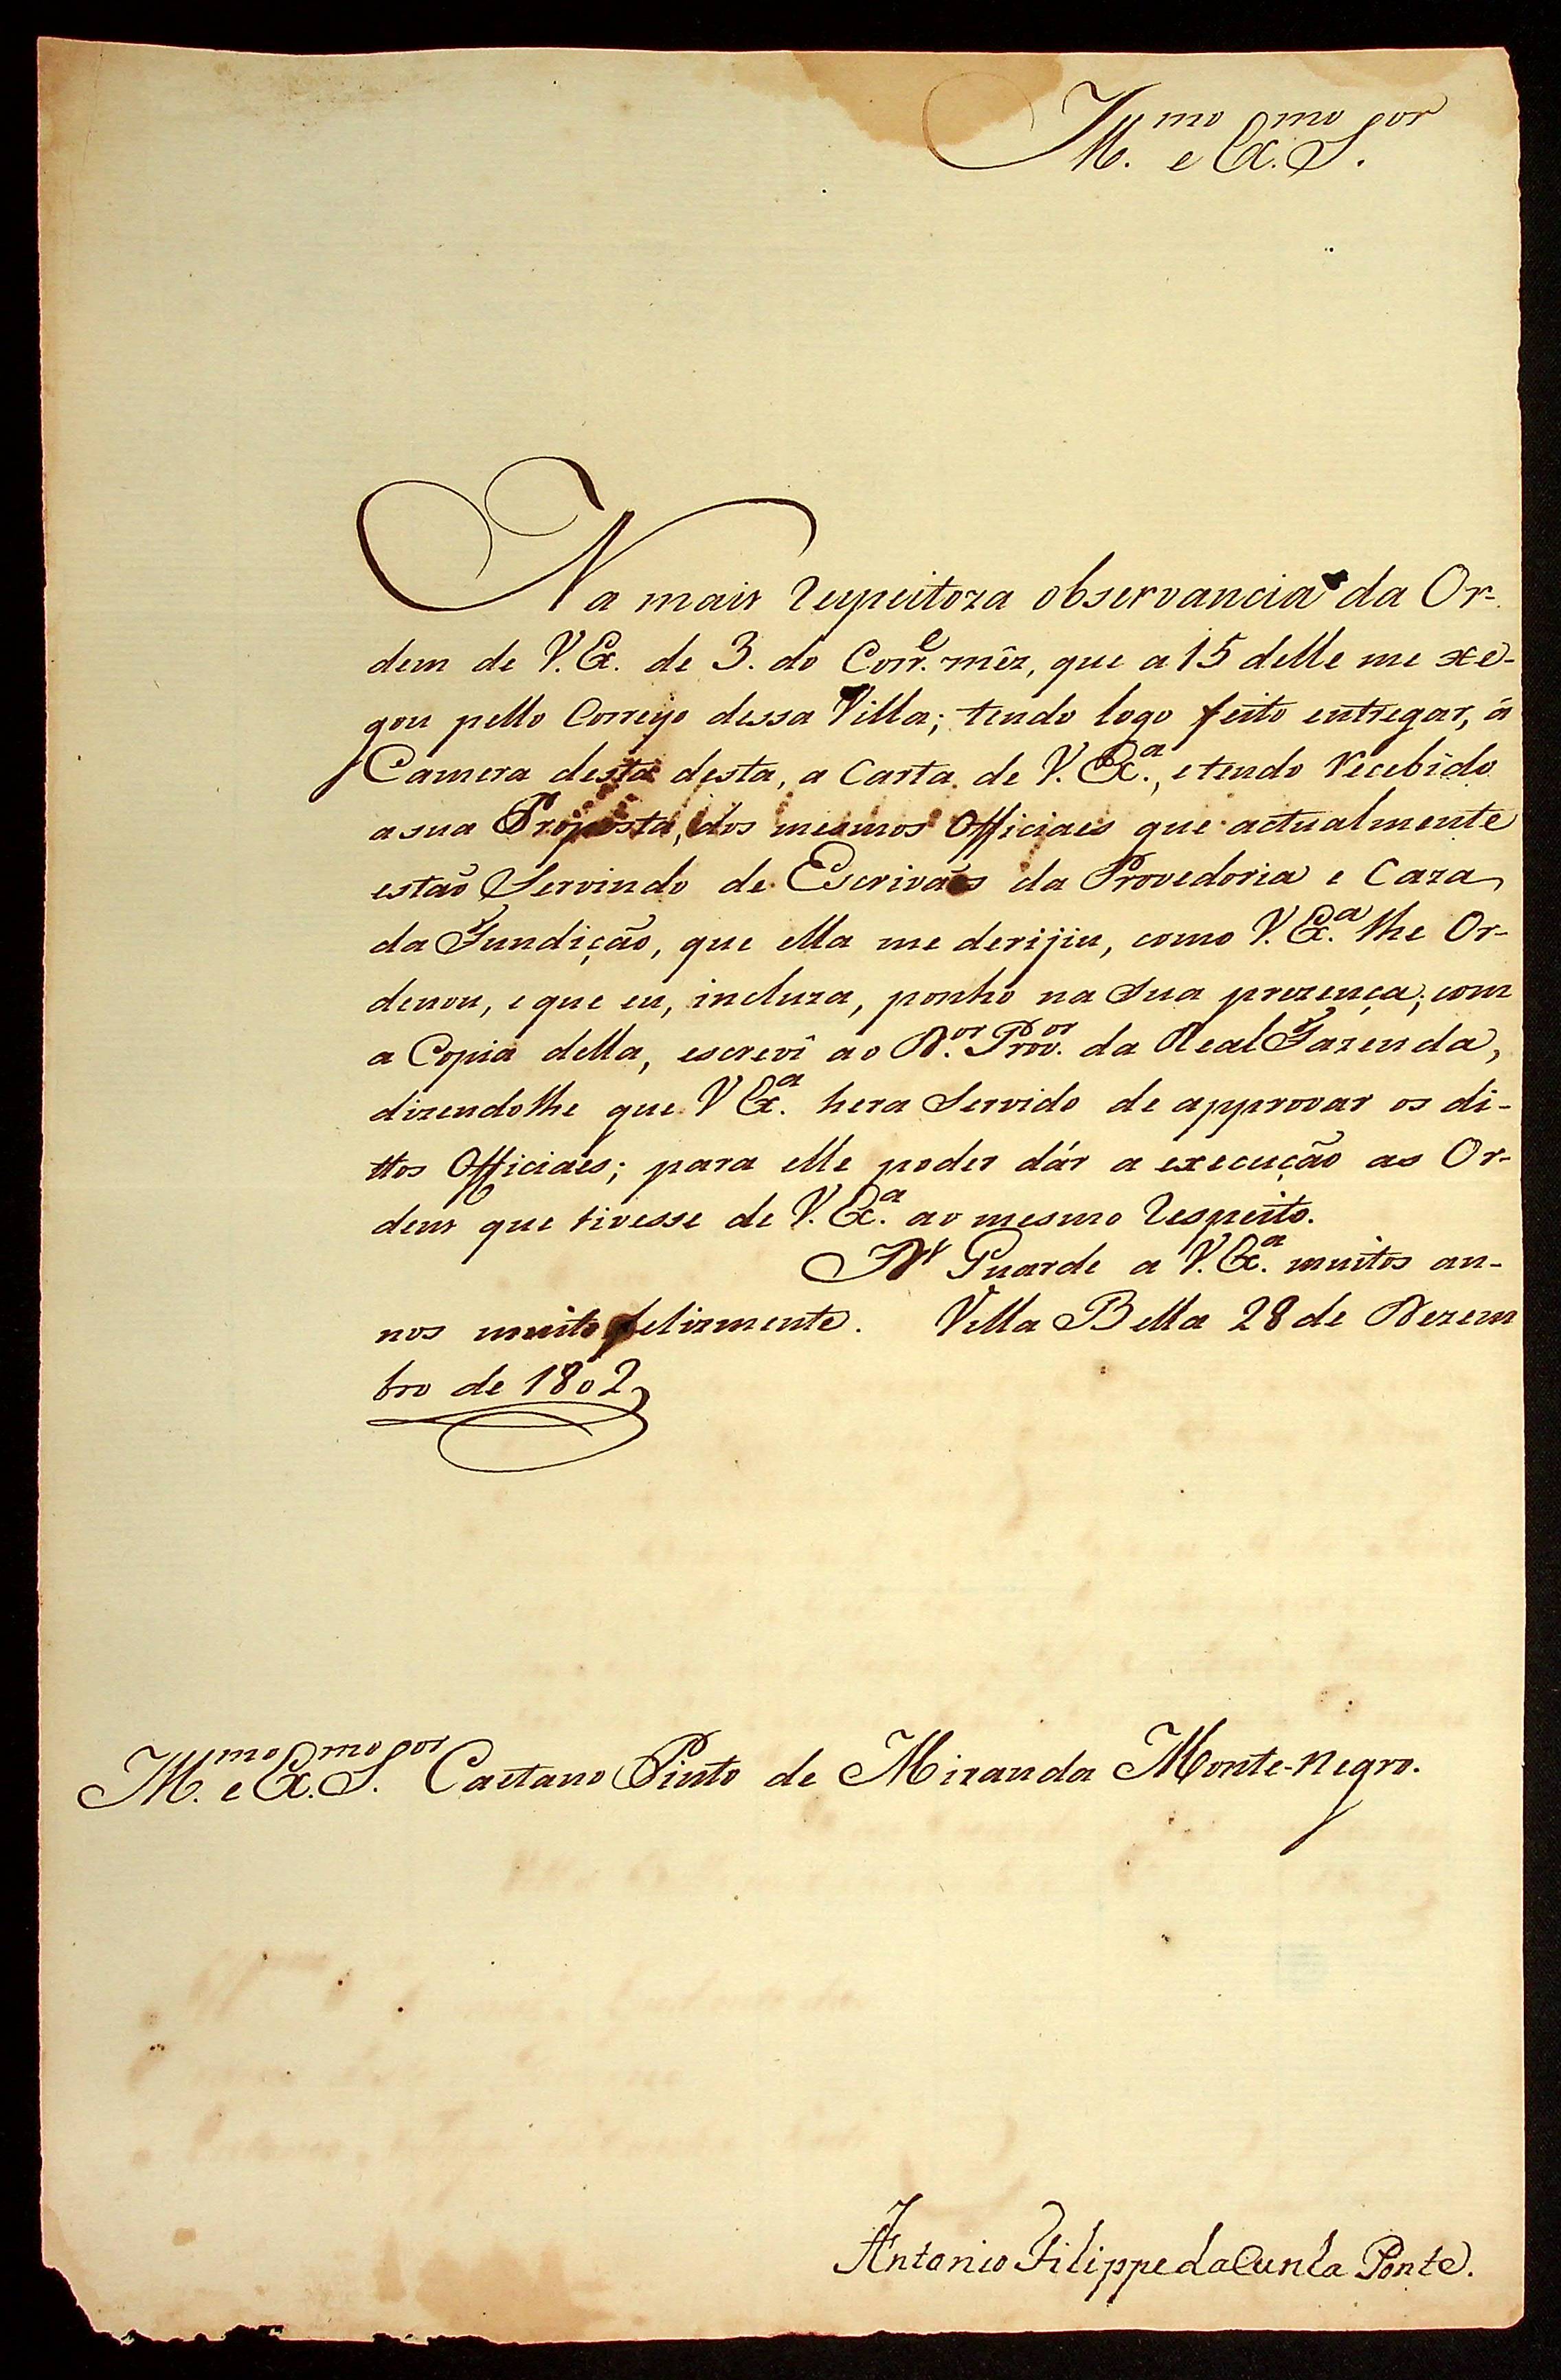 Ill.mo e Ex.mo S.or
Na mais respeitoza observancia da Or-
dem de V. Ex. de 3. do Corr.e mêz, que a 15 delle me xe-
gou pello Correyo dessa Villa; tendo logo feito entregar, á
Camera desta desta, a Carta de V. Ex.a, e tendo recebido
a sua Proposta, dos mesmos Officiaes que actualmente
estaõ Servindo de Escrivaẽs da Provedoria e Caza
da Fundiçaõ, que ella me derijiu, como V. Ex.a lhe Or-
denou, e que eu, incluza, ponho na Sua prezença; com
a Copia della, escrevî ao D.or Prov.or da Real Fazenda,
dizendolhe que V Ex.a hera Servido de approvar os di-
ttos Officiaes; para elle poder dár a execuçaõ as Or-
dens que tivesse de V. Ex.a ao mesmo respeito.
D.s Guarde a V. Ex.a muitos an-
nos muito felizmente. Villa Bella 28 de Dezem
bro de 1802
Ill.mo e Ex.mo S.or Caetano Pinto de Miranda Monte-negro.
Antonio Filippe da Cunha Ponte.